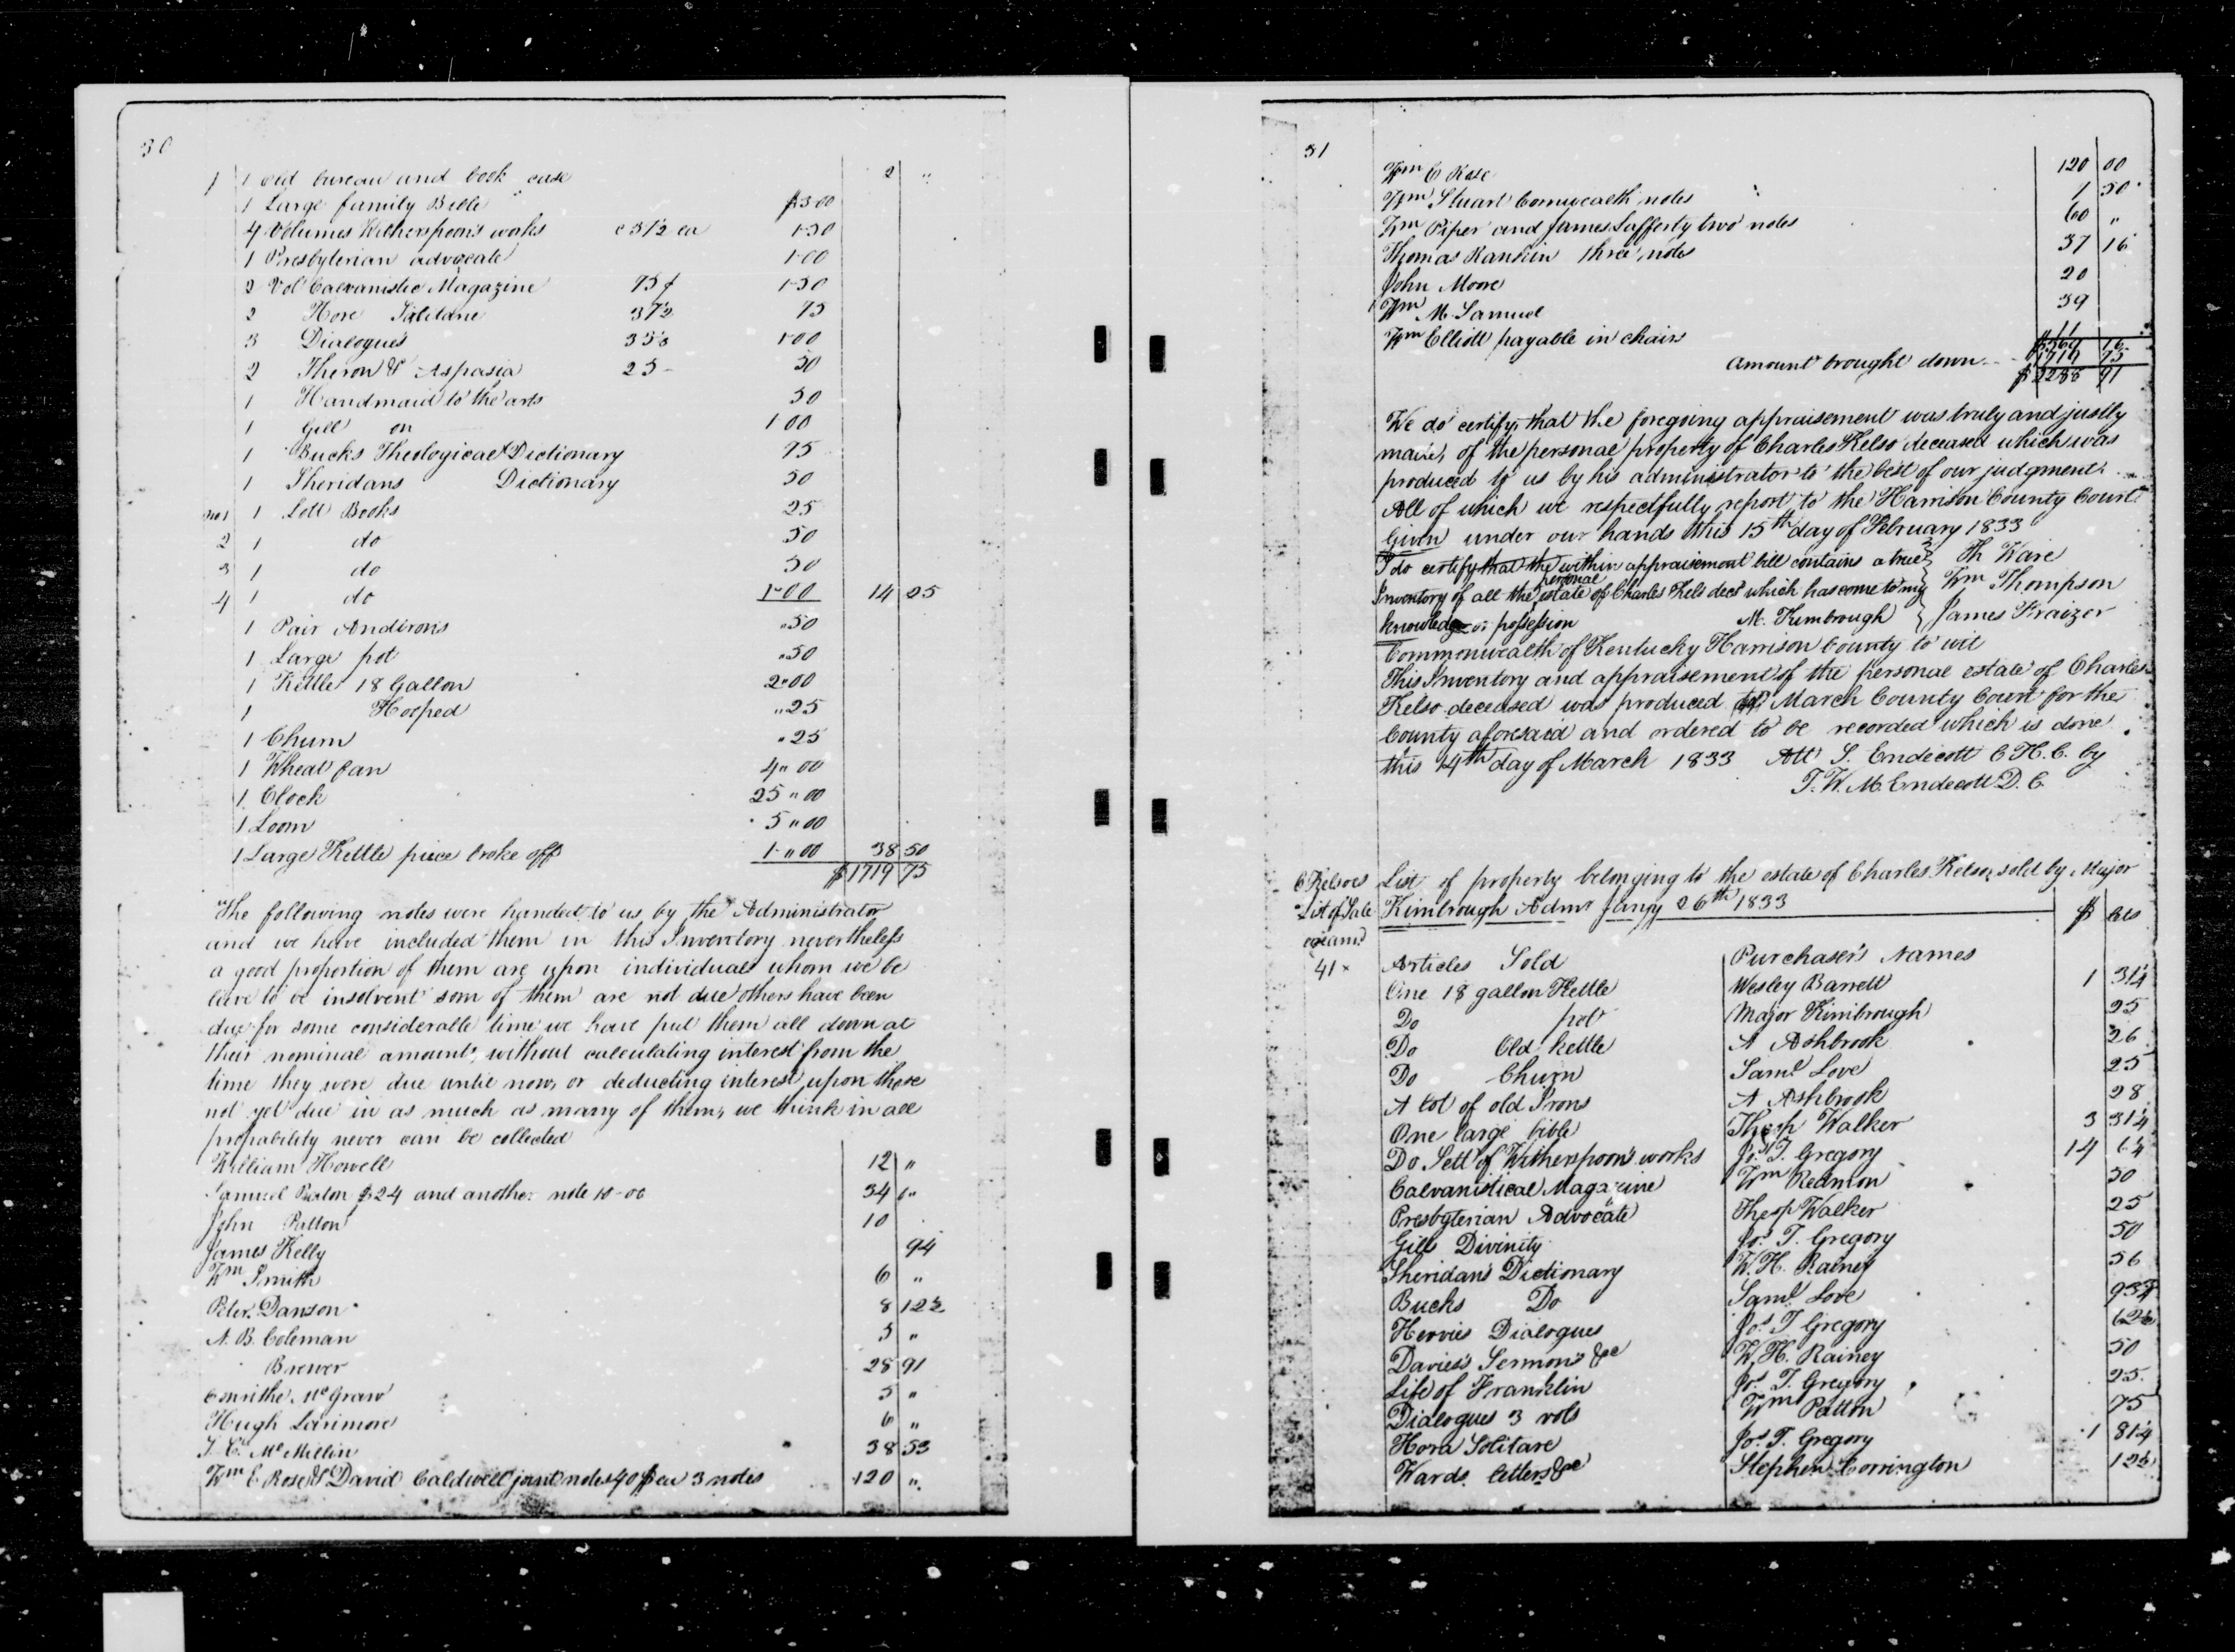 30
1 1 old bureau and book case 2 "
1 Large family Bible $3-00
4 Volumes Witherspoon's works c 37½ ea 1-50
1 Presbyterian advocate 1-00
2 Vol Calvanistic Magazine 75 ¢ 1-50
2 Hore Solitane 37½ 75
3 Dialogues 33⅓ 1-00
2 Theron & Aspasia 25- 50
1 Handmaid to the arts 50
1 Gill on 1-00
1 Bucks Theological Dictionary 75
1 Sheridans Dictionary 50
No1 1 Lott Books 25
2 1 do 50
3 1 do 50
4 1 do 1-00 14 25
1 Pair Andirons "50
1 Large pot "50
1 Kettle 18 Gallon 2"00
1 Hooped "25
1 Churn "25
1 Wheat fan 4"00
1 Clock 25"00
1 Loom 5"00
1 Large Kettle piece broke off 1"00 38 50
$1719 75
The following notes were handed to us by the Administrator
and we have included them in this Inventory nevertheless
a good proportion of them are upon individuals whom we be
lieve to be insolvent som of them are not due others have been
due for some considerable time we have put them all down at
their nominal amounts, without calculating interest from the
time they were due until now, or deducting interest upon those
not yet due in as much as many of them, we think in all
probability never can be collected
William Howell 12 "
Samuel $24 and another note 10-00 34 "
John Patton 10
James Kelly 94
Wm Smith 6 "
Peter Danson 8 12½
A. B. Coleman 5 "
Brewer 28 91
McGraw 5 "
Hugh Larimore 6 "
J. C. McMillin 38 53
Wm E. Rose & David Caldwell joint notes 40 $ ea 3 notes 120 "
31
Wm E Rose 120 00
Wm Stuart Comwealth notes 1 50
Wm Piper and James Lafferty two notes 60 "
Thomas Rankin three notes 37 16
John Moore 20
Wm M. Samuel 39
Wm Elliott payable in chairs 11
$569 16
Amount brought down 1719 75
$2288 91
We do certify, that the foregoing appraisement was truly and justly
made, of the personal property of Charles Kelso deceased which was
produced to us by his administrator to the best of our judgment.
All of which we respectfully report, to the Harrison County Court
Given under our hands this 15th day of February 1833
I do certify that the within appraisement bill contains a true } Th Ware
Inventory of all the personal estate of Charles Kels decd which has come to my Wm Thompson
knowledge or possession M. Kimbrough } James Fraizer
Commonwealth of Kentucky Harrison County to wit
This Inventory and appraisement of the personal estate of Charles
Kelso deceased was produced to March County Court for the
County aforesaid and ordered to be recorded which is done
this 14th day of March 1833 Att S. Endecott C H. C. by
T. W. M. Endecott D. C.
C Kelsoes List of property belonging to the estate of Charles Kelso, sold by Major
List of Sale Kimbrough Admr Jany 26th 1833 $ cts
examd
41x Articles Sold Purchaser's Names
One 18 gallon Kettle Wesley Barrett 1 31¼
Do pot Major Kimbrough 25
Do Old kettle A Ashbrook 26
Do Churn Saml Love 25
A lot of old Irons A Ashbrook 28
One large bible Thesp Walker 3 31¼
Do Sett of Witherspoon's works Jos T. Gregory 14 6¼
Calvanistical Magazine Wm Redmon 50
Presbyterian Advocate Thesp Walker 25
Gills Divinity Jos T. Gregory 50
Sheridan's Dictionary W. H. Rainey 56
Bucks Do Saml Love 93¾
Hervies Dialogues Jos T Gregory 62½
Davies's Sermons &c W. H. Rainey 50
Life of Franklin Jos T. Gregory 25
Dialogues 3 vols Wm Patton 75
Hora Solitare Jos T. Gregory 1 81¼
Wards letters &c Stephen Corrington 12½